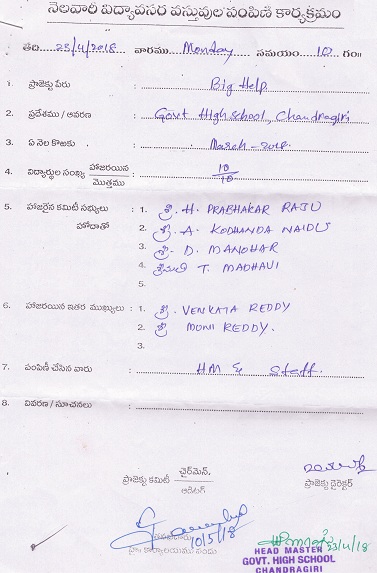 నెలవారీ విద్యావసర వస్తువుల పంపిణీ కార్యక్రమం
తేది 23/4/2018 వారము Monday సమయం 10 గం॥
1. ప్రాజెక్టు పేరు : Big Help
2. ప్రదేశము / ఆవరణ : Govt High school, Chandragiri
3. ఏ నెల కొఱకు : March - 2018
4. విద్యార్థుల సంఖ్య హాజరయిన / మొత్తము : 10 / 10
5. హాజరైన కమిటీ సభ్యులు : 1. శ్రీ. H. PRABHAKAR RAJU
హోదాతో 2. శ్రీ. A. KODHANDA NAIDU
3. శ్రీ. D. MANOHAR
4. శ్రీమతి T. MADHAVI
5.
6. హాజరయిన ఇతర ముఖ్యులు : 1. శ్రీ. VENKATA REDDY
2. శ్రీ MUNI REDDY.
3.
7. పంపిణీ చేసిన వారు : HM & Staff.
8. వివరణ / సూచనలు :
ప్రాజెక్టు కమిటీ ఛైర్మెన్, / ఆడిటర్ ప్రాజెక్టు డైరెక్టర్
10/5/18 23/4/18
HEAD MASTER
GOVT. HIGH SCHOOL
CHANDRAGIRI